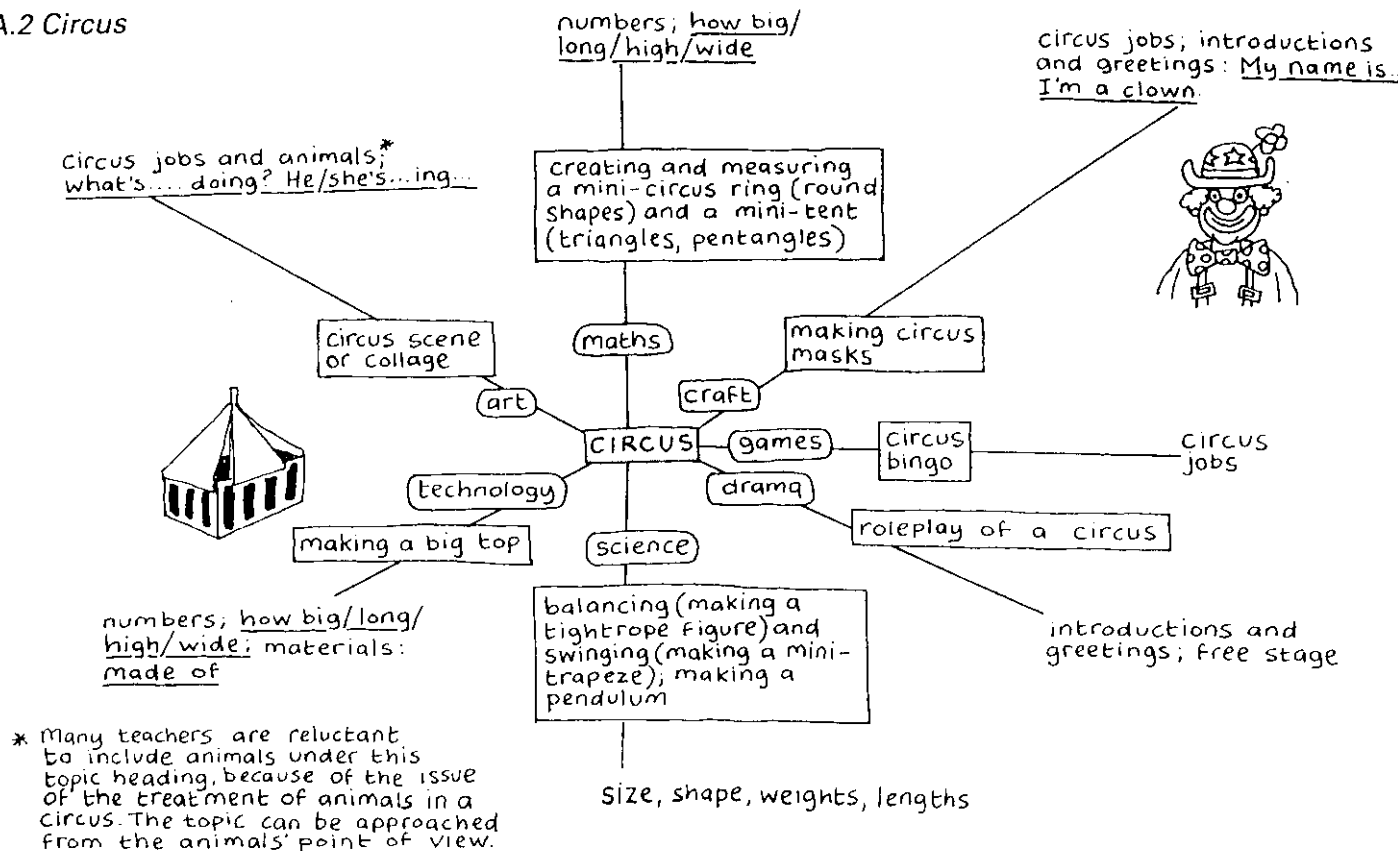 A.2 Circus
numbers; how big/
long/high/wide
circus jobs; introductions
and greetings: My name is..
I'm a clown.
circus jobs and animals;*
what's.... doing? He/she's...ing...
creating and measuring
a mini-circus ring (round
shapes) and a mini-tent
(triangles, pentangles)
circus scene
or collage
maths
making circus
masks
art
craft
CIRCUS
games
circus
bingo
circus
jobs
technology
drama
making a big top
science
roleplay of a circus
numbers; how big/long/
high/wide; materials:
made of
balancing (making a
tightrope figure) and
swinging (making a mini-
trapeze); making a
pendulum
introductions and
greetings; free stage
* Many teachers are reluctant
to include animals under this
topic heading, because of the issue
of the treatment of animals in a
circus. The topic can be approached
from the animals' point of view.
size, shape, weights, lengths